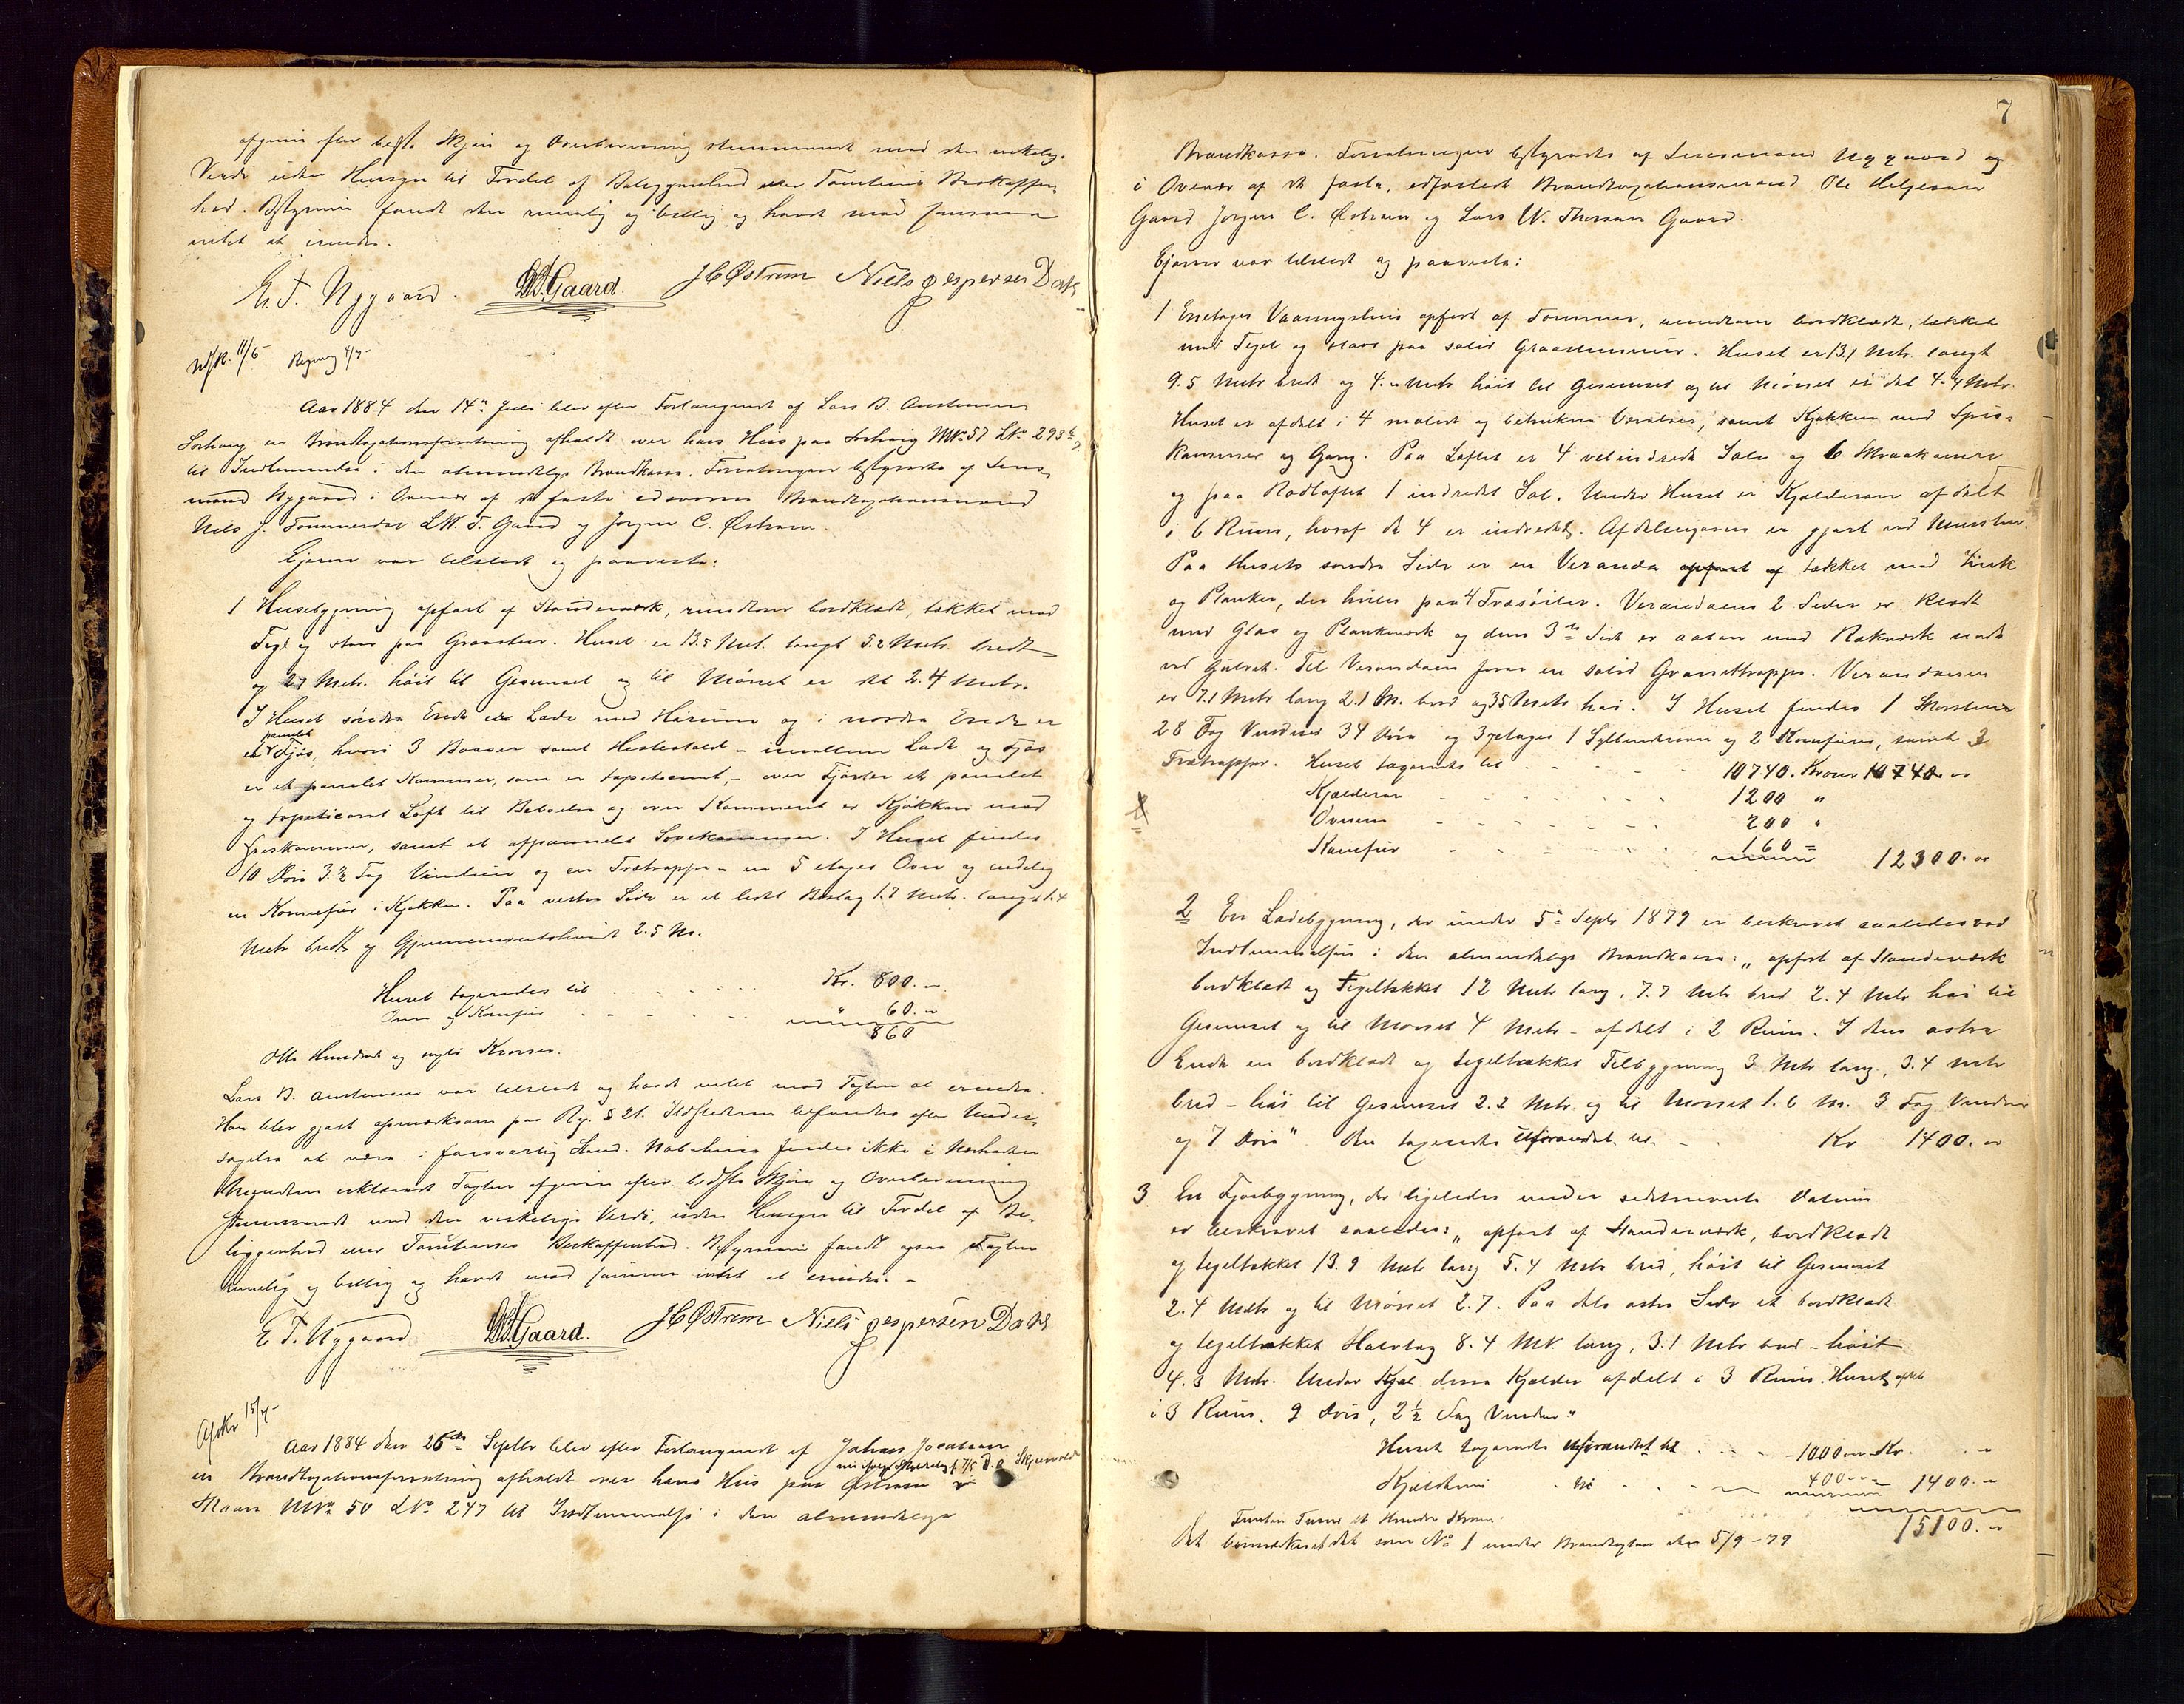 afgiven efter bedste Skjøn og Overbevisning stemmende med den virkelige
Værdi uden Hensyn til Fordel af Beliggenhed eller Tomtens Beskaffen
hed. Bestyreren fandt den rimelig og billig og havde mod samme
intet at erindre.
E. T. Nygaard. Gaard. JCØstrem Niels Jespersen Dahl
Udsk. 11/6 Regning 4/7
Aar 1884 den 14de Juli blev efter Forlangende af Lars B. Austensen
Sørhaug en Brandtaxationsforretning afholdt over hans Hus paa Sørhaug MNo 57 LNo 293
til Indlemmelse i den almindelige Brandkasse. Forretningen bestyredes af Lens
mand Nygaard i Overvær af de faste edsvorne Brandtaxationsmænd
Nils J. Tommerdal L.W.T. Gaard og Jørgen C. Østrem.
Ejeren var tilstede og paaviste:
1 Husebygning opført af Standerværk, rundtom bordklædt, tækket med
Tegl og staar paa Graasten. Huset er 13.5 Met. langt 5.2 Metr. bredt
og 2.1 Metr. høit til Gesimset og til Mønet er det 2.4 Metr.
I Huset søndre Ende er Lade med Hørum og i nordre Ende er
panelet
et Fjøs, hvori 3 Baaser samt Hestestald – imellem Lade og Fjøs
er et panelet Kammer, som er tapetseret, – over Fjøset et panelet
og tapetseret Loft til Beboelse og over Kammeret er Kjøkken med
Spiskammer, samt et afpanelet Sovekammer. I Huset findes
10 Døre 3.½ Fag Vinduer og en Trætrappe – en 5 etages Ovn og endelig
en Komfur i Kjøkken. Paa vestre Side er et lidet Bislag 1.7 Metr. langt 1.4
Metr bredt og Gjennemsnitshøide 2.5 M.
Huset taxeredes til . . . . . . Kr. 800. –
Ovn og Komfur - - - - - " 60. –
860
Otte Hundrede og sexti Kroner.
Lars B. Austensen var tilstede og havde intet mod Taxten at erindre.
Han blev gjort opmærksom paa Rg. § 21. Ildstederne befandtes efter Under-
søgelse at være i forsvarlig Stand. Nabohuse findes ikke i Nærheden
Mændene erklærede Taxten afgiven efter bedste Skjøn og Overbevisning
stemmende med den virkelige Værdi, uden Hensyn til Fordel af Be-
liggenhed eller Tomtens Beskaffenhed. Bestyreren fandt ogsaa Taxten
rimelig og billig og havde mod samme intet at erindre. –
E T. Nygaard Gaard. JCØstrem Niels Jespersen Dahl
Afskr 15/4
Aar 1884 den 26de Septbr blev efter Forlangende af Johans Josatsen
en Brandtaxationsforretning afholdt over hans Hus paa Østrem
Skaare MNo 50 LNo 247 til Indlemmelse i den almindelige
7
Brandkasse. Forretningen bestyredes af Lensmand Nygaard og
i Overvær af de faste, edfæstede Brandtaxationsmænd Ole Helgesen
Gaard Jørgen C. Østrem og Lars W. Thorsen Gaard.
Ejeren var tilstede og paaviste:
1 Enetages Vaaningshus opført af Tømmer, rundtom bordklædt, tækket
med Tegl og staar paa solid Graastensmur. Huset er 13.1 Metr. langt
9.5 Metr bredt og 4. Metr høit til Gesimset og til Mønet er det 4.4 Metr.
Huset er afdelt i 4 malede og betrukne Værelser, samt Kjøkken med Spis-
kammer og Gang. Paa Loftet er 4 velindrede Sale og 6 Skraakamre
og paa Rødloftet 1 indredet Sal. Under Huset er Kjælderen afdelt
i 6 Rum, hvoraf de 4 er indredet. Afdelingerne er gjort ved Mursten.
Paa Husets søndre Side er en Veranda opført af tækket med Zink
og Planker, der hviler paa 4 Træsøiler. Verandaens 2 Sider er klædt
med Glas og Plankeværk og dens 3de Side er aaben med Rækværk nede
ved Gulvet. Til Verandaen fører en solid Granittrappe. Verandaen
er 7.1 Metr lang 2.1 M. bred og 3.5 Metr høi. I Huset findes 1 Skorsten
28 Fag Vinduer 34 Døre og 3 etages 1 Sylinderovn og 2 Komfurer, samt 3
Trætrapper. Huset taxeredes til - - - - 10740. Kroner 10740. "
Kjælderen - - - - - 1200 "
Ovnene - - - - - 200 "
Komfur - - - - - 160 =
12300. "
2 En Ladebygning, der under 5te Septr 1879 er beskrevet saaledes ved
Indlemmelsen i den almindelige Brandkasse: „opført af Standerværk
bordklædt og Tegltækket 12 Metr lang, 7.7 Metr bred 2.4 Metr høi til
Gesimset og til Mønet 4 Metr – afdelt i 2 Rum. I dens østre
Ende en bordklædt og tegltækket Tilbygning 3 Metr lang, 3.4 Metr
bred – høi til Gesimset 2.2 Metr og til Mønet 1.6 M. 3 Fag Vinduer
og 7 Døre". Den taxeredes uforandret til - - Kr 1400. "
3 En Fjøsbygning, der ligeledes under sidstnævnte Datum
er beskrevet saaledes: „opført af Standerværk, bordklædt
og tegltækket 13.9 Metr lang 5.4 Metr bred, høit til Gesimset
2.4 Metr og til Mønet 2.7. Paa dets østre Side et bordklædt
og tegltækket Halvtag 8.4 Mtr. lang, 3.1 Metr bred – høit
4.3 Metr. Under Kjæl disse Kjælder afdelt i 3 Rum. Huset afdelt
i 3 Rum, 9 Døre, 2½ Fag Vinduer"
Huset taxeredes uforandret til - - - 1000 " Kr. . –
Kjælderen - til - - - 400 " 1400. "
Femten Tusinde et Hundre Kroner. 15100. "
Det bemærkes at det som No 1 under Brandtaxten den 5/9-79